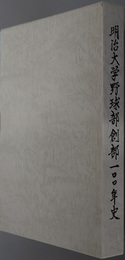 明治大学野球部創部一〇〇年史